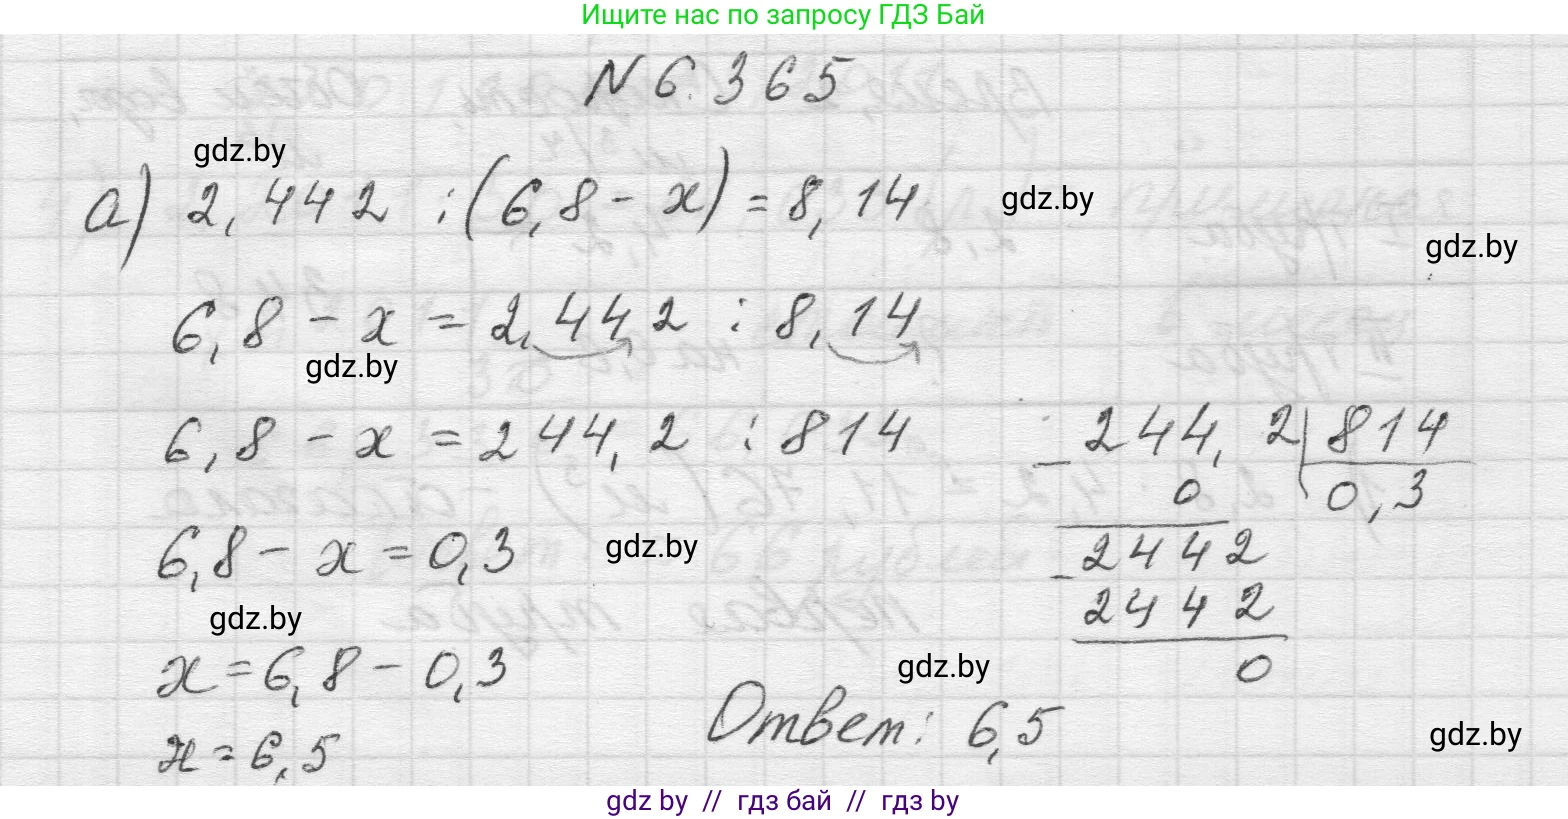 Ищите нас по запросу ГДЗ Бай
N 6.365
gdz.by
а) 2,442 : (6,8 - x) = 8,14
gdz.by
gdz.by
6,8 - x = 2,442 : 8,14
gdz.by
6,8 - x = 244,2 : 814
244,2 | 814
0 0,3
6,8 - x = 0,3
gdz.by
- 2442
2442
gdz.by
0
x = 6,8 - 0,3
gdz.by
Ответ: 6,5
gdz.by
x = 6,5
gdz by // гдз бай // гдз by